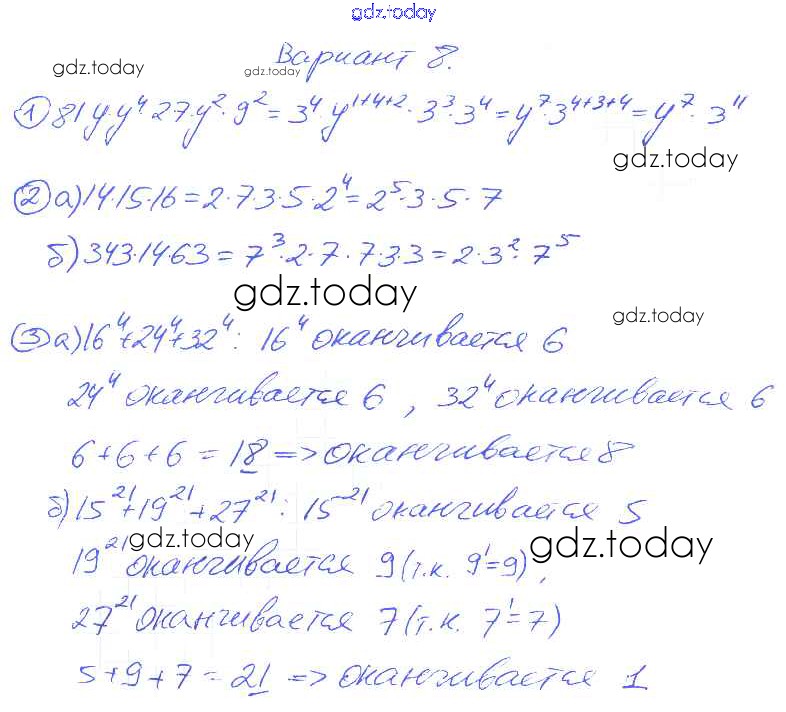 gdz.today
Вариант 8.
gdz.today gdz.today
① 81y·y⁴·27·y²·9² = 3⁴·y¹⁺⁴⁺²·3³·3⁴ = y⁷·3⁴⁺³⁺⁴ = y⁷·3¹¹
gdz.today
② а) 14·15·16 = 2·7·3·5·2⁴ = 2⁵·3·5·7
б) 343·14·63 = 7³·2·7·7·3·3 = 2·3²·7⁵
gdz.today gdz.today
③ а) 16⁴+24⁴+32⁴: 16⁴ оканчивается 6
24⁴ оканчивается 6, 32⁴ оканчивается 6
6+6+6 = 18 => оканчивается 8
б) 15²¹+19²¹+27²¹: 15²¹ оканчивается 5
gdz.today gdz.today
19²¹ оканчивается 9 (т.к. 9¹=9),
27²¹ оканчивается 7 (т.к. 7¹=7)
5+9+7 = 21 => оканчивается 1